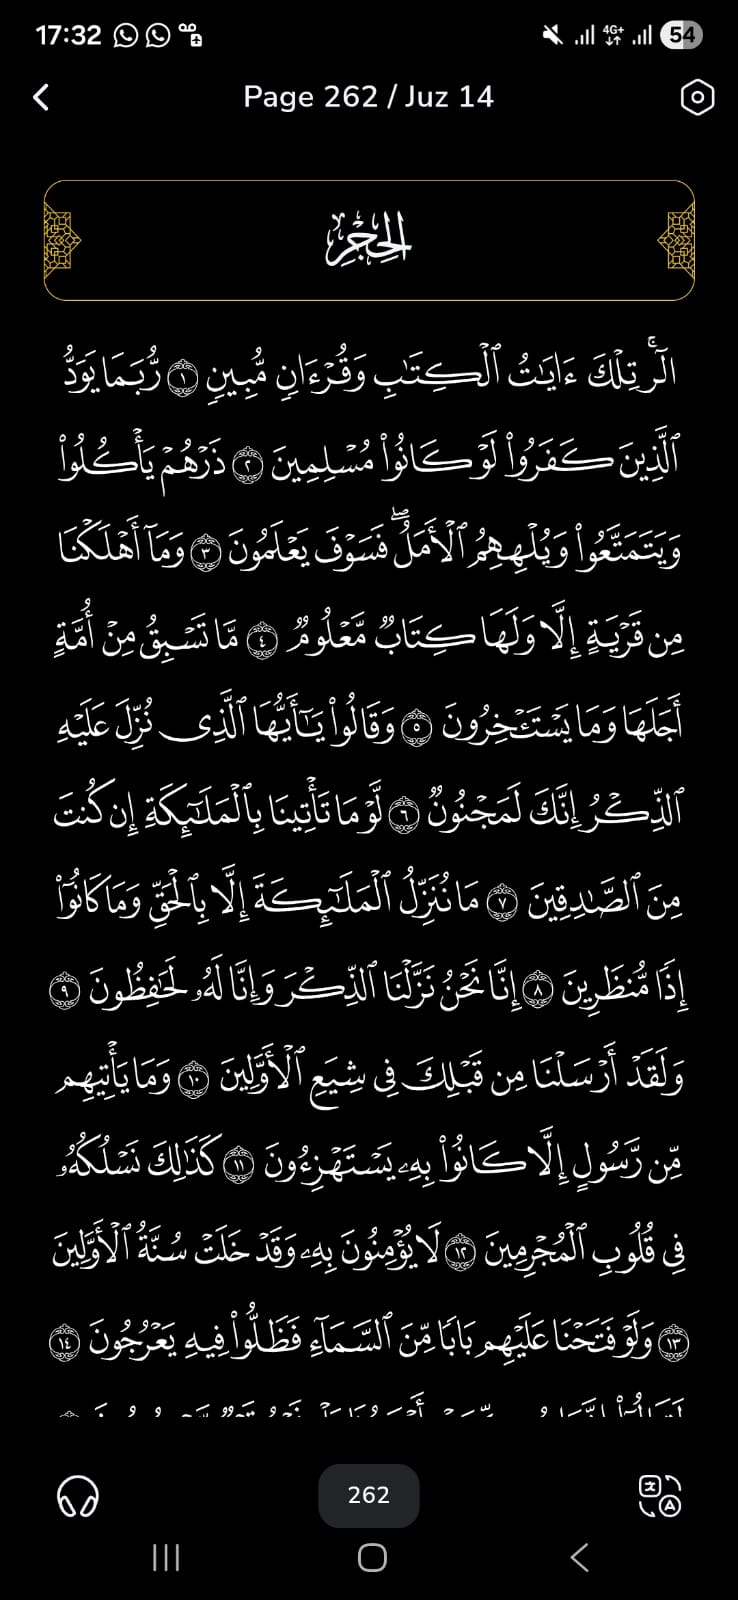 17:32
4G+
54
Page 262 / Juz 14
الحِجْرِ
الٓرۚ تِلۡكَ ءَايَٰتُ ٱلۡكِتَٰبِ وَقُرۡءَانٖ مُّبِينٖ ١ رُّبَمَا يَوَدُّ
ٱلَّذِينَ كَفَرُواْ لَوۡ كَانُواْ مُسۡلِمِينَ ٢ ذَرۡهُمۡ يَأۡكُلُواْ
وَيَتَمَتَّعُواْ وَيُلۡهِهِمُ ٱلۡأَمَلُۖ فَسَوۡفَ يَعۡلَمُونَ ٣ وَمَآ أَهۡلَكۡنَا
مِن قَرۡيَةٍ إِلَّا وَلَهَا كِتَابٞ مَّعۡلُومٞ ٤ مَّا تَسۡبِقُ مِنۡ أُمَّةٍ
أَجَلَهَا وَمَا يَسۡتَـٔۡخِرُونَ ٥ وَقَالُواْ يَٰٓأَيُّهَا ٱلَّذِي نُزِّلَ عَلَيۡهِ
ٱلذِّكۡرُ إِنَّكَ لَمَجۡنُونٞ ٦ لَّوۡمَا تَأۡتِينَا بِٱلۡمَلَٰٓئِكَةِ إِن كُنتَ
مِنَ ٱلصَّٰدِقِينَ ٧ مَا نُنَزِّلُ ٱلۡمَلَٰٓئِكَةَ إِلَّا بِٱلۡحَقِّ وَمَا كَانُوٓاْ
إِذٗا مُّنظَرِينَ ٨ إِنَّا نَحۡنُ نَزَّلۡنَا ٱلذِّكۡرَ وَإِنَّا لَهُۥ لَحَٰفِظُونَ ٩
وَلَقَدۡ أَرۡسَلۡنَا مِن قَبۡلِكَ فِي شِيَعِ ٱلۡأَوَّلِينَ ١٠ وَمَا يَأۡتِيهِم
مِّن رَّسُولٍ إِلَّا كَانُواْ بِهِۦ يَسۡتَهۡزِءُونَ ١١ كَذَٰلِكَ نَسۡلُكُهُۥ
فِي قُلُوبِ ٱلۡمُجۡرِمِينَ ١٢ لَا يُؤۡمِنُونَ بِهِۦ وَقَدۡ خَلَتۡ سُنَّةُ ٱلۡأَوَّلِينَ
١٣ وَلَوۡ فَتَحۡنَا عَلَيۡهِم بَابٗا مِّنَ ٱلسَّمَآءِ فَظَلُّواْ فِيهِ يَعۡرُجُونَ ١٤
262